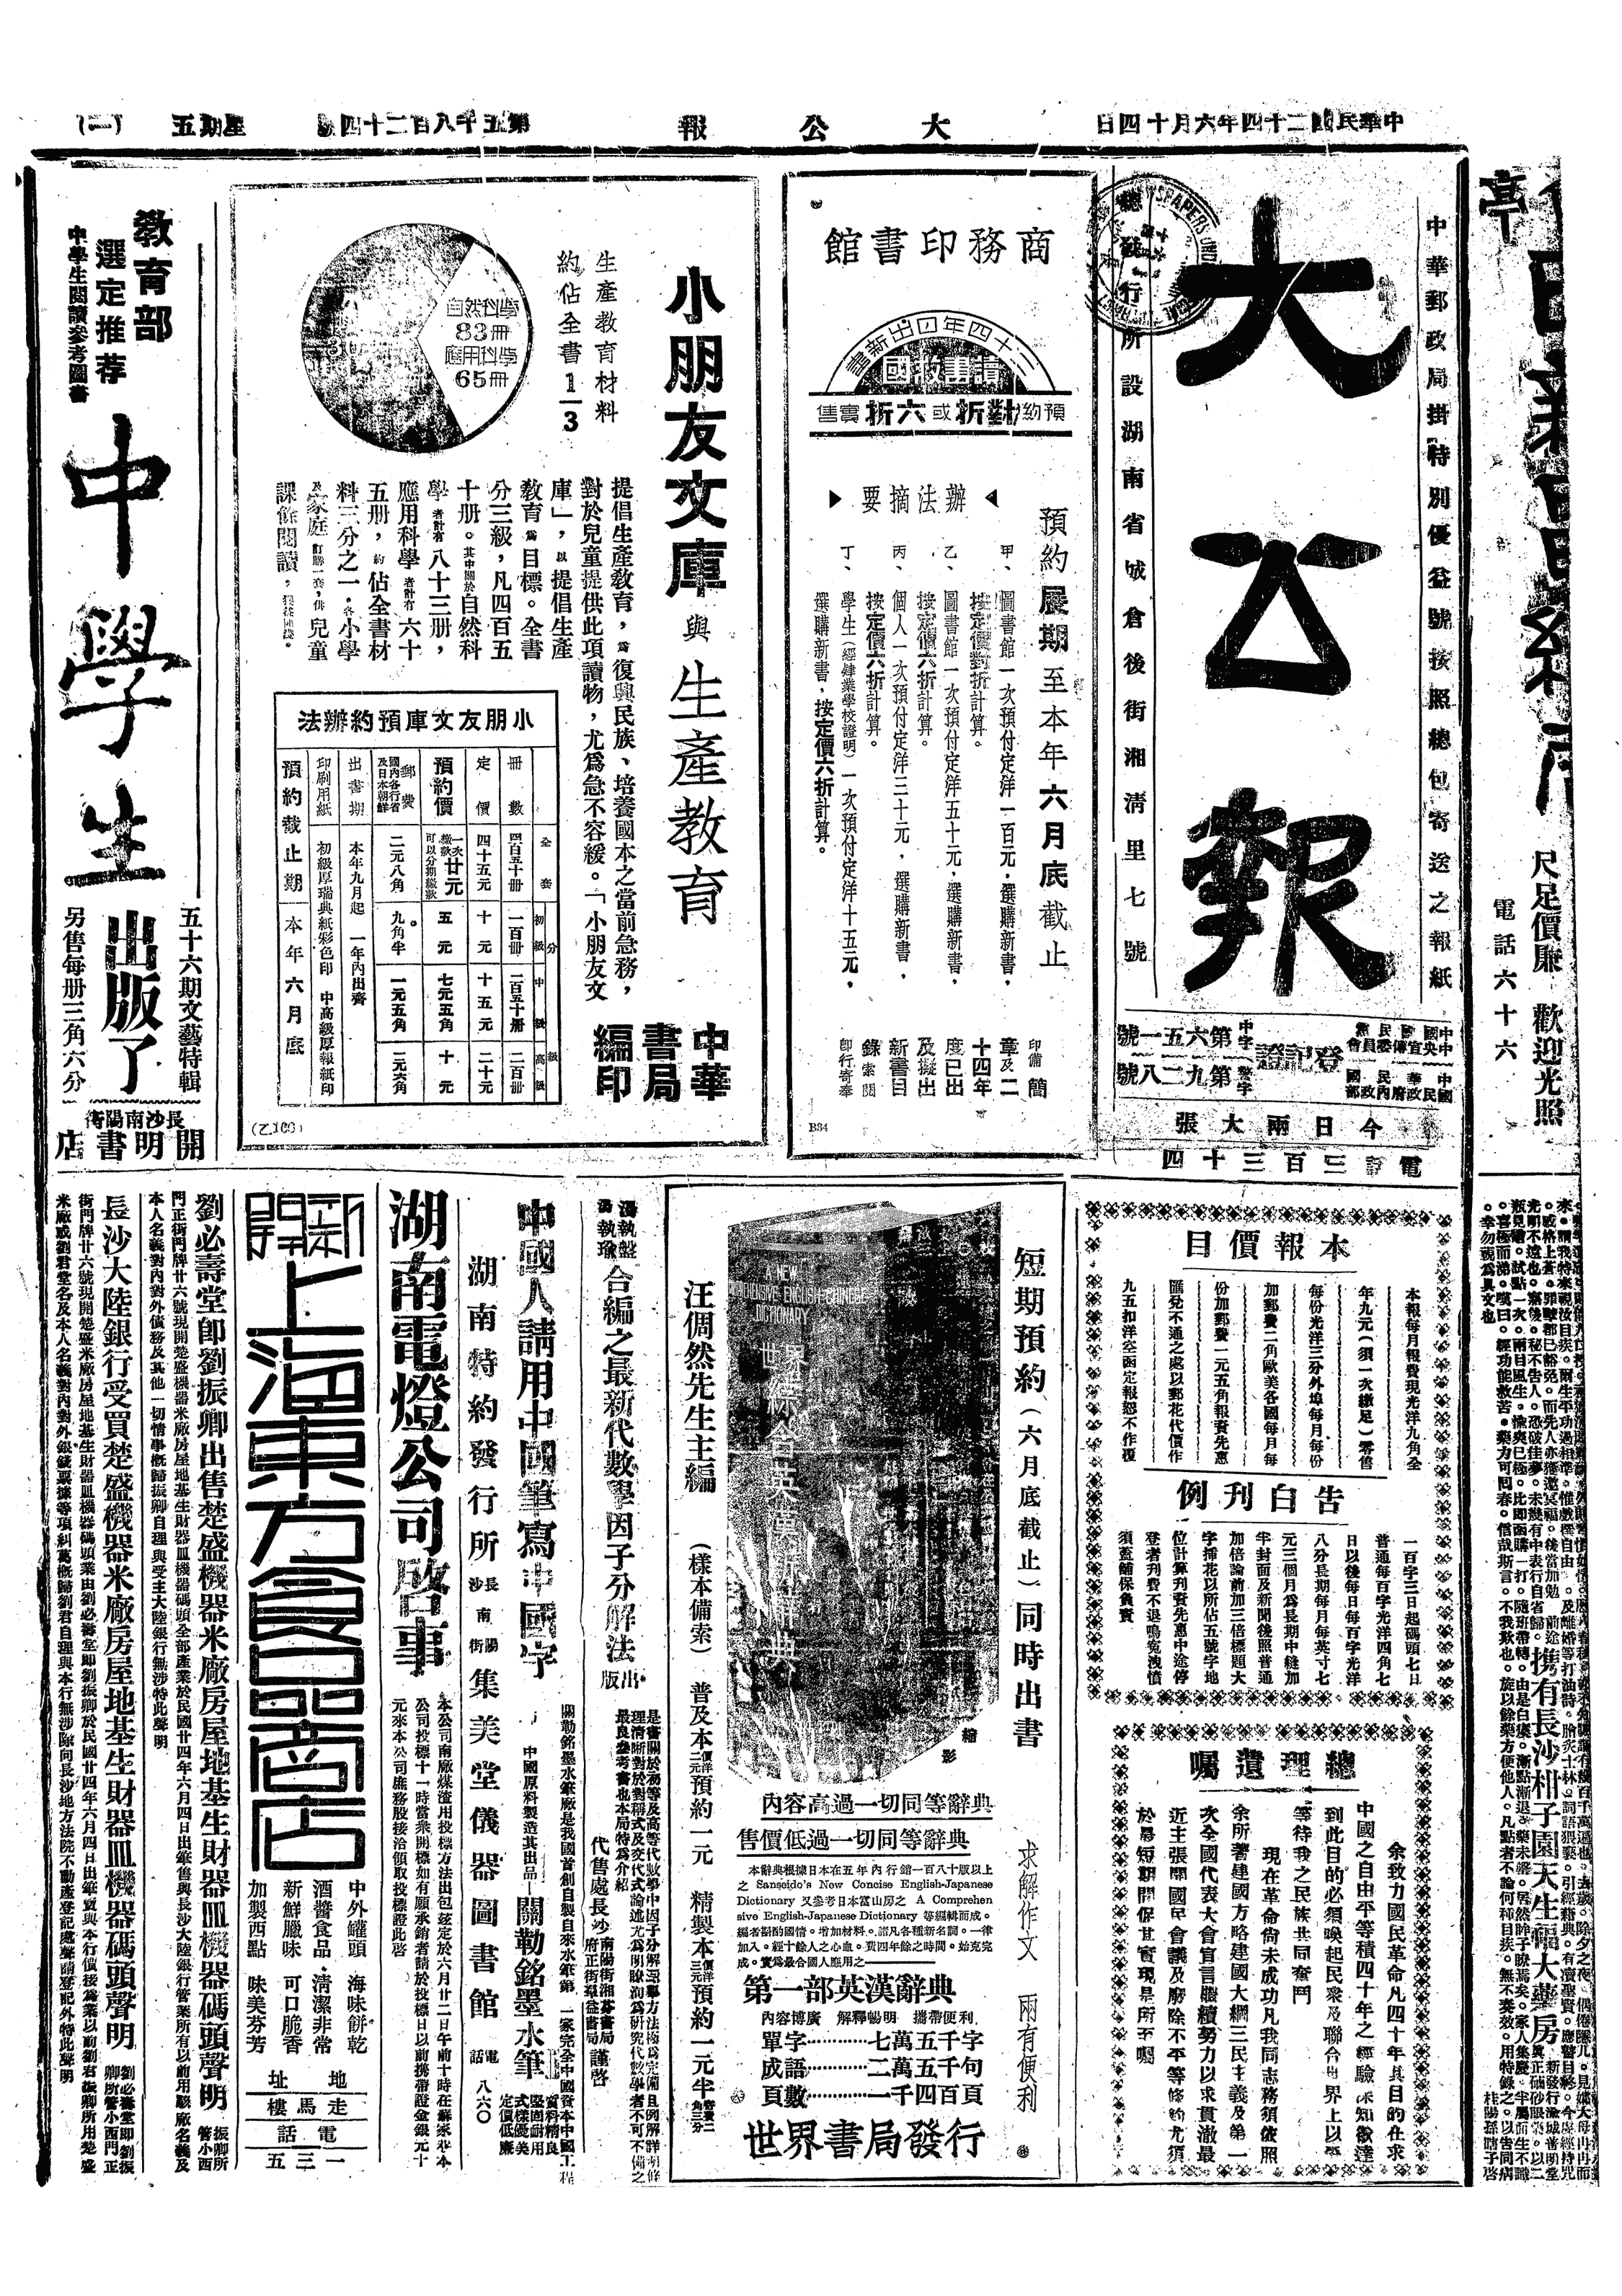 中華民國二十四年六月十四日
大公報
第五千八百二十四號
星期五
(一)
大公報
中華郵政局掛特別優益號按照總包寄送之報紙
總發行所設湖南省城倉後街湘清里七號
登記證
中字第六五一號
警字第九二八號
今日兩大張
電話三百三十四
尺足價廉 歡迎光照
電話六十六
商務印書館
二十四年四月出新書
讀書救國
預約對折或六折實售
預約展期至本年六月底截止
辦法摘要
甲、圖書館一次預付定洋一百元,選購新書,
按定價對折計算。
乙、圖書館一次預付定洋五十元,選購新書,
按定價六折計算。
丙、個人一次預付定洋三十元,選購新書,
按定價六折計算。
丁、學生(經肄業學校證明)一次預付定洋十五元,
選購新書,按定價六折計算。
印備簡
章及二
十四年
度已出
及擬出
新書目
錄索閱
即行寄奉
B34
小朋友文庫與生產教育
中華書局編印
生產教育材料
約佔全書1/3
自然科學
83冊
應用科學
65冊
提倡生產教育,為復興民族、培養國本之當前急務,
對於兒童提供此項讀物,尤為急不容緩。「小朋友文
庫」,以提倡生產
教育為目標。全書
分三級,凡四百五
十册。其中關於自然科
學者計有八十三册,
應用科學者計有六十
五册,約佔全書材
料三分之一,各小學
及家庭訂購一套,供兒童
課餘閱讀,
小朋友文庫預約辦法
冊數 全套 四百五十册 初級 一百冊 中級 一百五十册 高級 二百冊
定價 四十五元 十元 十五元 二十元
預約價 一次繳款廿元 可以分期繳款 五元 七元五角 十元
郵費 國內各行省及日本朝鮮 二元八角 九角半 一元五角 三元六角
出書期 本年九月起 一年內出齊
印刷用紙 初級厚瑞典紙彩色印 中高級厚報紙印
預約截止期 本年六月底
教育部
選定推荐
中學生閱讀參考圖書
中學生
出版了
五十六期文藝特輯
另售每册三角六分
長沙南陽街
開明書店
本報價目
本報每月報費現光洋九角全
年九元(須一次繳足)零售
每份光洋三分外埠每月每份
加郵費二角歐美各國每月每
份加郵費一元五角報資先惠
匯兌不通之處以郵花代價作
九五扣洋空函定報恕不作覆
告白刊例
一百字三日起碼頭七日
普通每百字光洋四角七
日以後每日每百字光洋
八分長期每月每英寸七
元三個月為長期中縫加
半封面及新聞後照普通
加倍論前加三倍標題大
字挿花以所佔五號字地
位計算刊資先惠中途停
登者刊費不退鳴寃洩憤
須蓋舖保負責
總理遺囑
余致力國民革命凡四十年其目的在求
中國之自由平等積四十年之經驗深知欲達
到此目的必須喚起民衆及聯合世界上以平
等待我之民族共同奮鬥
現在革命尚未成功凡我同志務須依照
余所著建國方略建國大綱三民主義及第一
次全國代表大會宣言繼續努力以求貫澈最
近主張開國民會議及廢除不平等條約尤須
於最短期間促其實現是所至囑
短期預約(六月底截止)同時出書
求解作文 兩有便利
A NEW
COMPREHENSIVE ENGLISH-CHINESE
DICTIONARY
世界綜合英漢新辭典
縮影
汪倜然先生主編
(樣本備索)
普及本價洋二元預約一元
精製本價洋三元預約一元半
內容高過一切同等辭典
售價低過一切同等辭典
本辭典根據日本在五年內行銷一百八十版以上
之 Sanseido's New Concise English-Japanese
Dictionary 又參考日本富山房之 A Comprehen
sive English-Japanese Dictionary 等編輯而成。
編者斟酌國情。增加材料。諸凡各種新名詞。一律
加入。經十餘人之心血。費四年餘之時間。始克完
成。實為最合國人應用之
第一部英漢辭典
內容博廣 解釋暢明 攜帶便利
單字…………七萬五千字
成語…………二萬五千句
頁數…………一千四百頁
世界書局發行
湯執盤
湯執瑜
合編之最新代數學因子分解法出版
代售處長沙南陽街湘芬書局
府正街羣益書局
謹啓
中國人請用中國筆寫中國字
中國原料製造其出品
關勒銘墨水筆
質料精良
堅固耐用
式樣優美
定價低廉
湖南特約發行所長沙南陽街集美堂儀器圖書館
電話 八六〇
湖南電燈公司啓事
本公司南廠煤渣用投標方法出包茲定於六月廿二日午前十時在蘇家巷本
公司投標十一時當衆開標如有願承銷者請於投標日以前携帶證金銀元十
元來本公司庶務股接洽領取投標證此啓
新開
上海東方食品商店
中外罐頭 海味餅乾
酒醬食品 清潔非常
新鮮臘味 可口脆香
加製西點 味美芬芳
地址
走馬樓
電話
一三五
劉必壽堂即劉振卿出售楚盛機器米廠房屋地基生財器皿機器碼頭聲明
振卿所管小西
門正街門牌廿六號現開楚盛機器米廠房屋地基生財器皿機器碼頭全部產業於民國廿四年六月四日出筆售與長沙大陸銀行管業所有以前用該廠名義及
本人名義對內對外債務及其他一切情事概歸振卿自理與受主大陸銀行無涉特此聲明
長沙大陸銀行受買楚盛機器米廠房屋地基生財器皿機器碼頭聲明
劉必壽堂即劉振卿所管小西門正
街門牌廿六號現開楚盛米廠房屋地基生財器皿機器碼頭業由劉必壽堂即劉振卿於民國廿四年六月四日出筆賣與本行價接為業以前劉君振卿所用楚盛
米廠或劉君堂名及本人名義對內對外銀錢票據等項糾葛概歸劉君自理與本行無涉除向長沙地方法院不動產登記處聲請登記外特此聲明